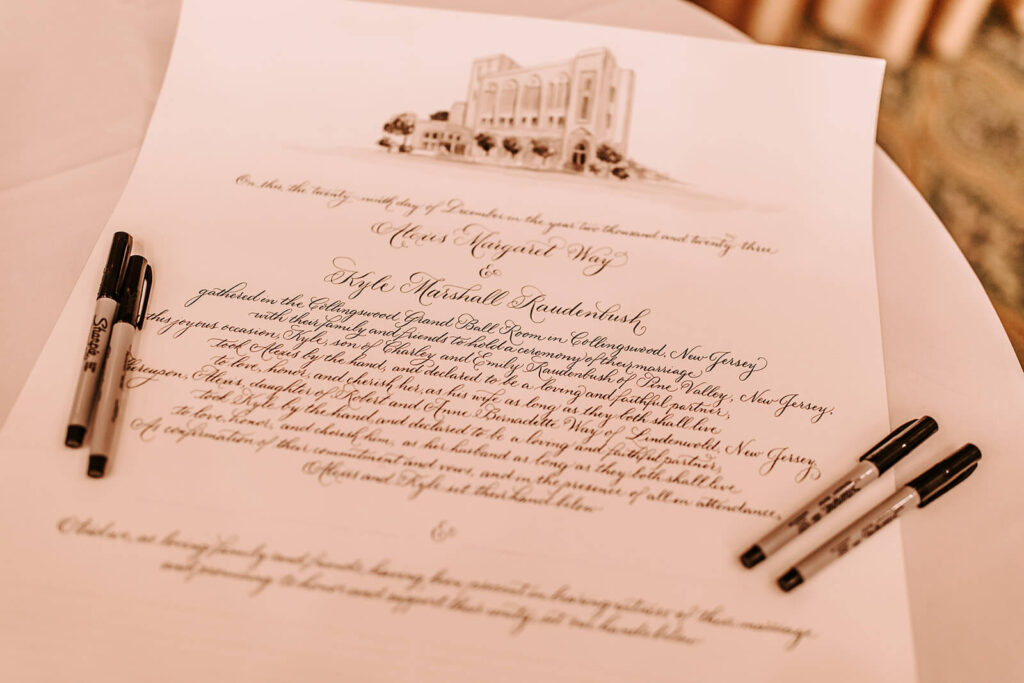 On this, the twenty-ninth day of December in the year two thousand and twenty-three
Alexis Margaret Way
&
Kyle Marshall Raudenbush
gathered in the Collingswood Grand Ball Room in Collingswood, New Jersey
with their family and friends to hold a ceremony of their marriage
this joyous occasion, Kyle, son of Charley and Emily Raudenbush of Pine Valley, New Jersey,
took Alexis by the hand, and declared to be a loving and faithful partner,
to love, honor, and cherish her, as his wife as long as they both shall live
Thereupon, Alexis, daughter of Robert and Anne Bernadette Way of Lindenwold, New Jersey,
took Kyle by the hand and declared to be a loving and faithful partner,
to love, honor, and cherish him, as her husband as long as they both shall live
As confirmation of their commitment and vows, and in the presence of all in attendance,
Alexis and Kyle set their hand below
&
And we, as loving family and friends having been present in bearing witness of their marriage
and promising to honor and support their unity, set our hands below
Sharpie
Sharpie